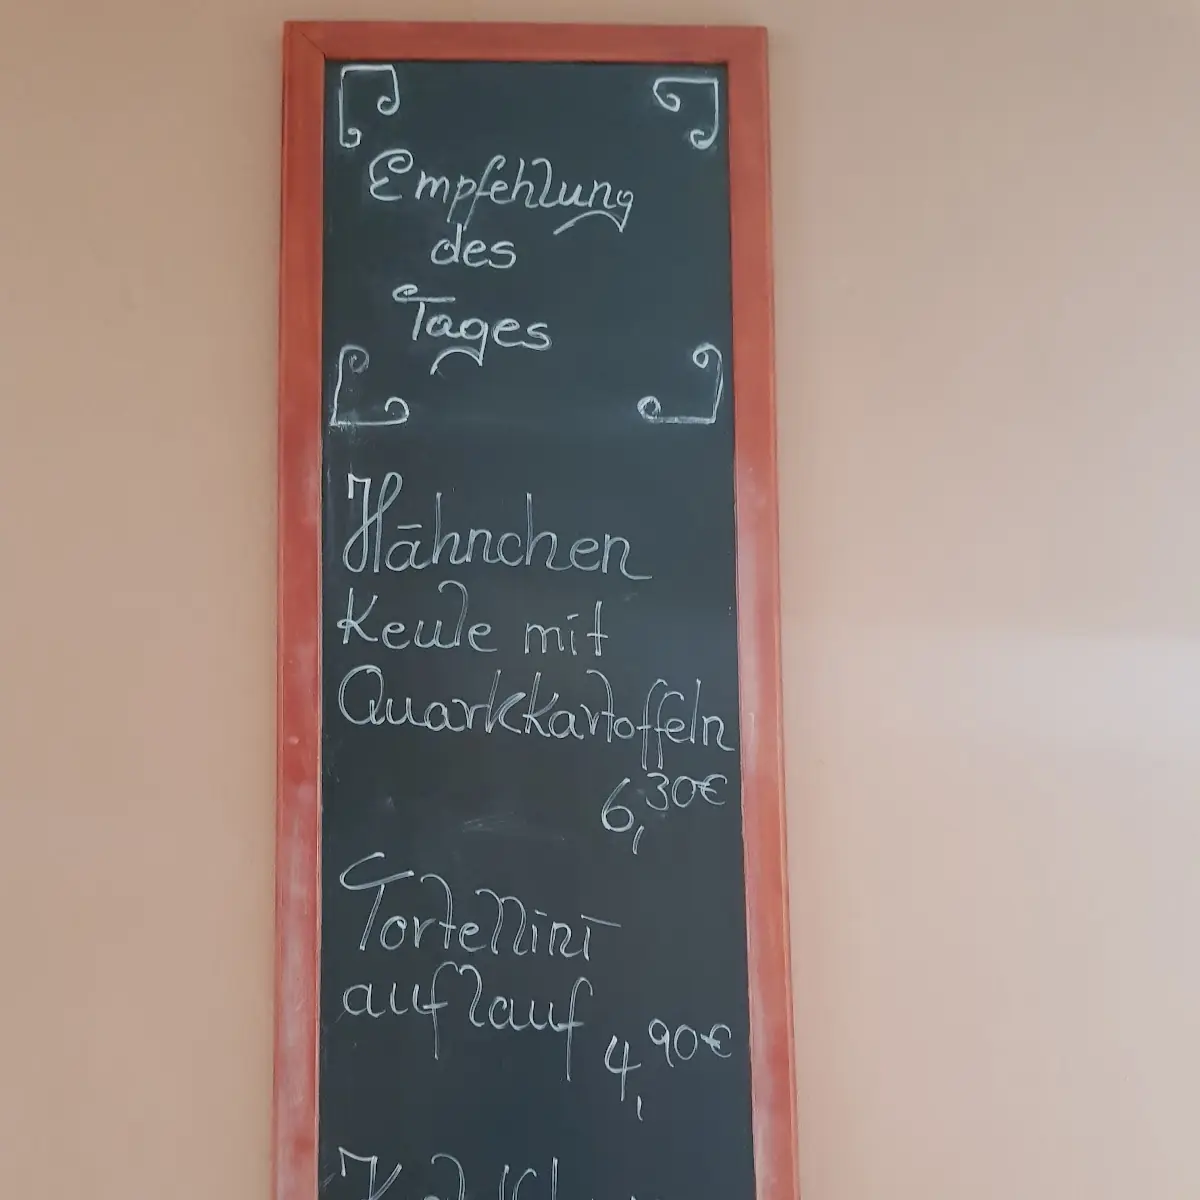 Empfehlung
des
Tages
Hähnchen
Keule mit
Quarkkartoffeln
6,30€
Tortellini
auflauf
4,90€